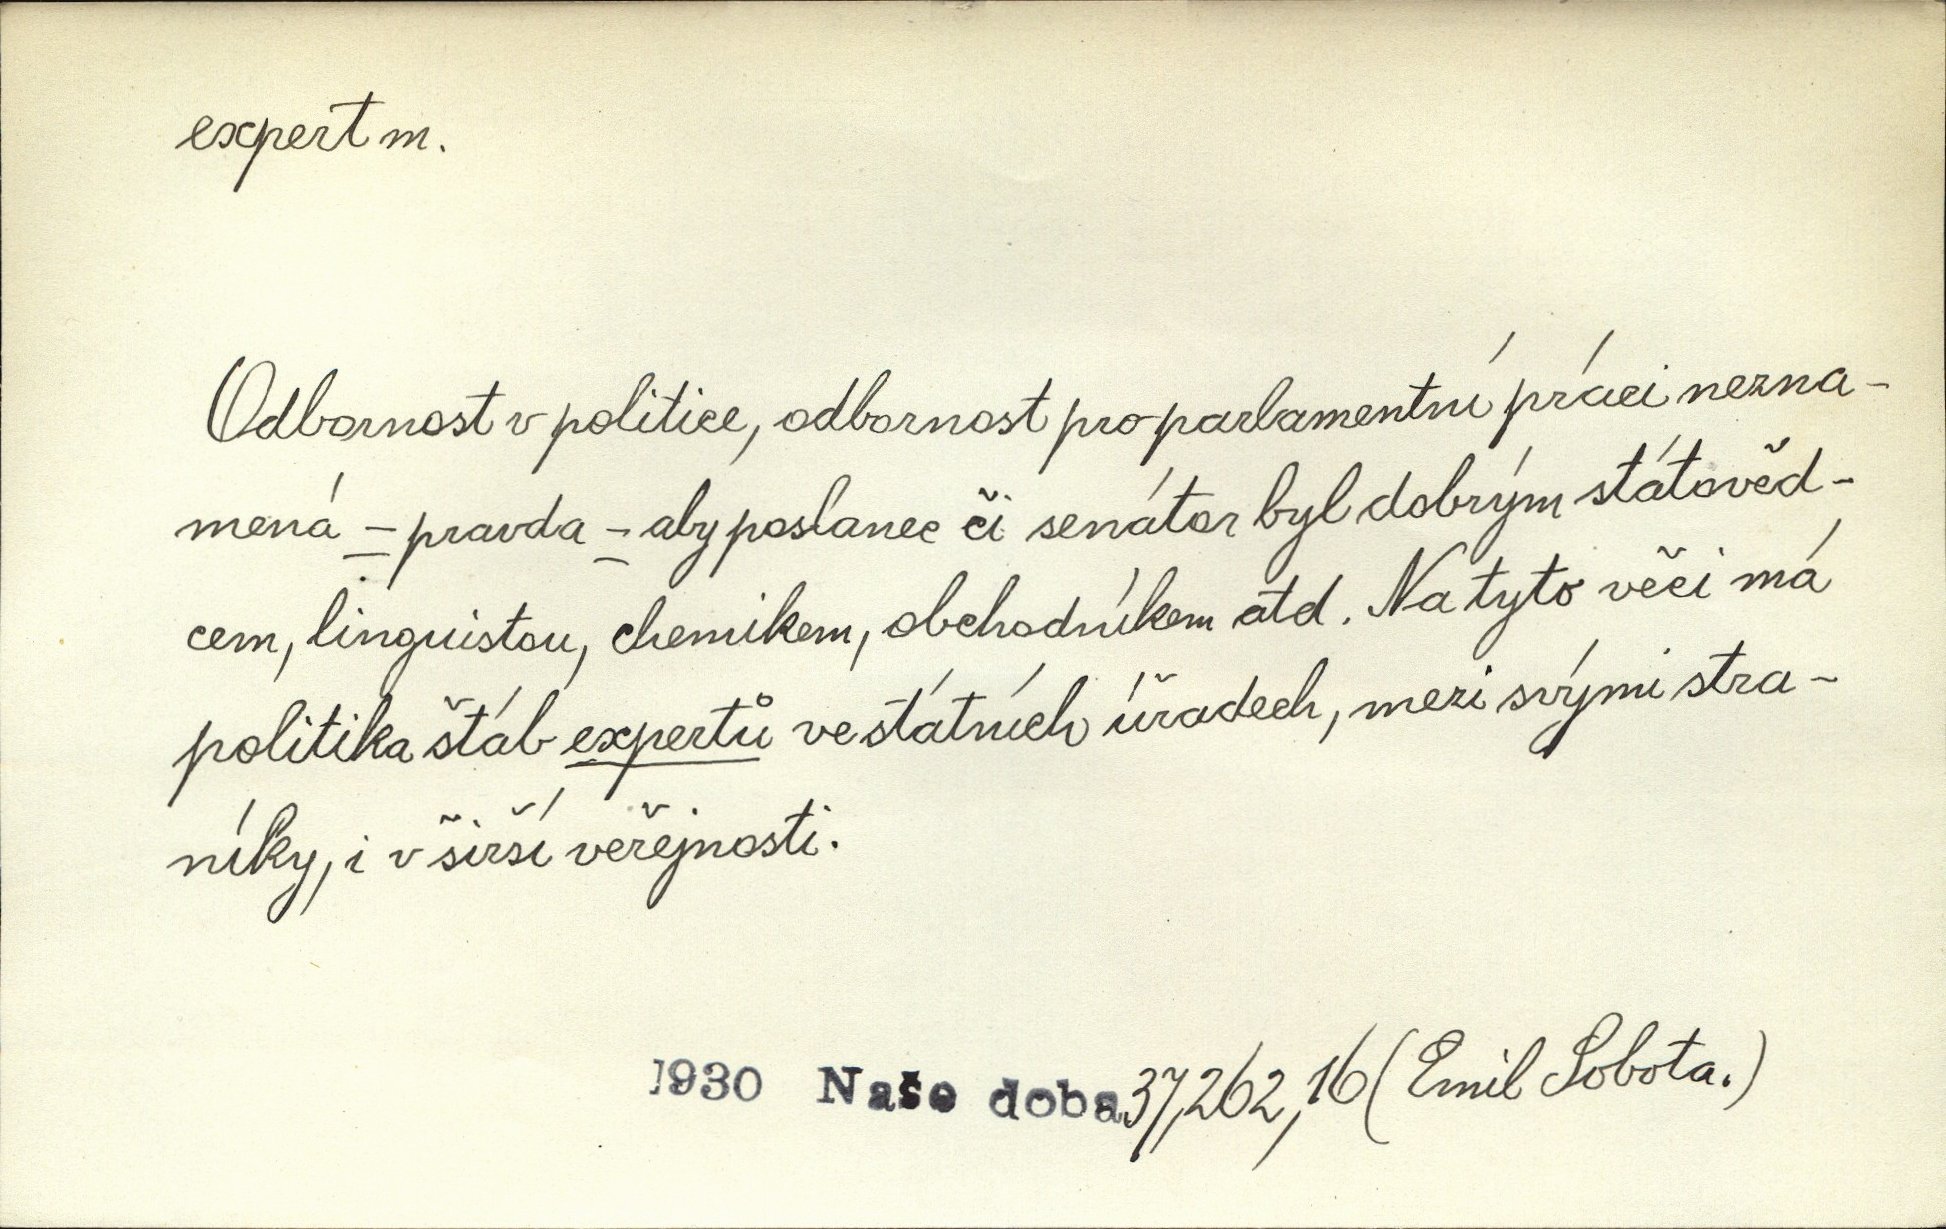 expert m.
Odbornost v politice, odbornost pro parlamentní práci nezna-
mená – pravda – aby poslanec či senátor byl dobrým státověd-
cem, linguistou, chemikem, obchodníkem atd. Na tyto věci má
politika štáb expertů ve státních úřadech, mezi svými stra-
níky, i v širší veřejnosti.
1930 Naše doba 37,262,16 (Emil Sobota.)